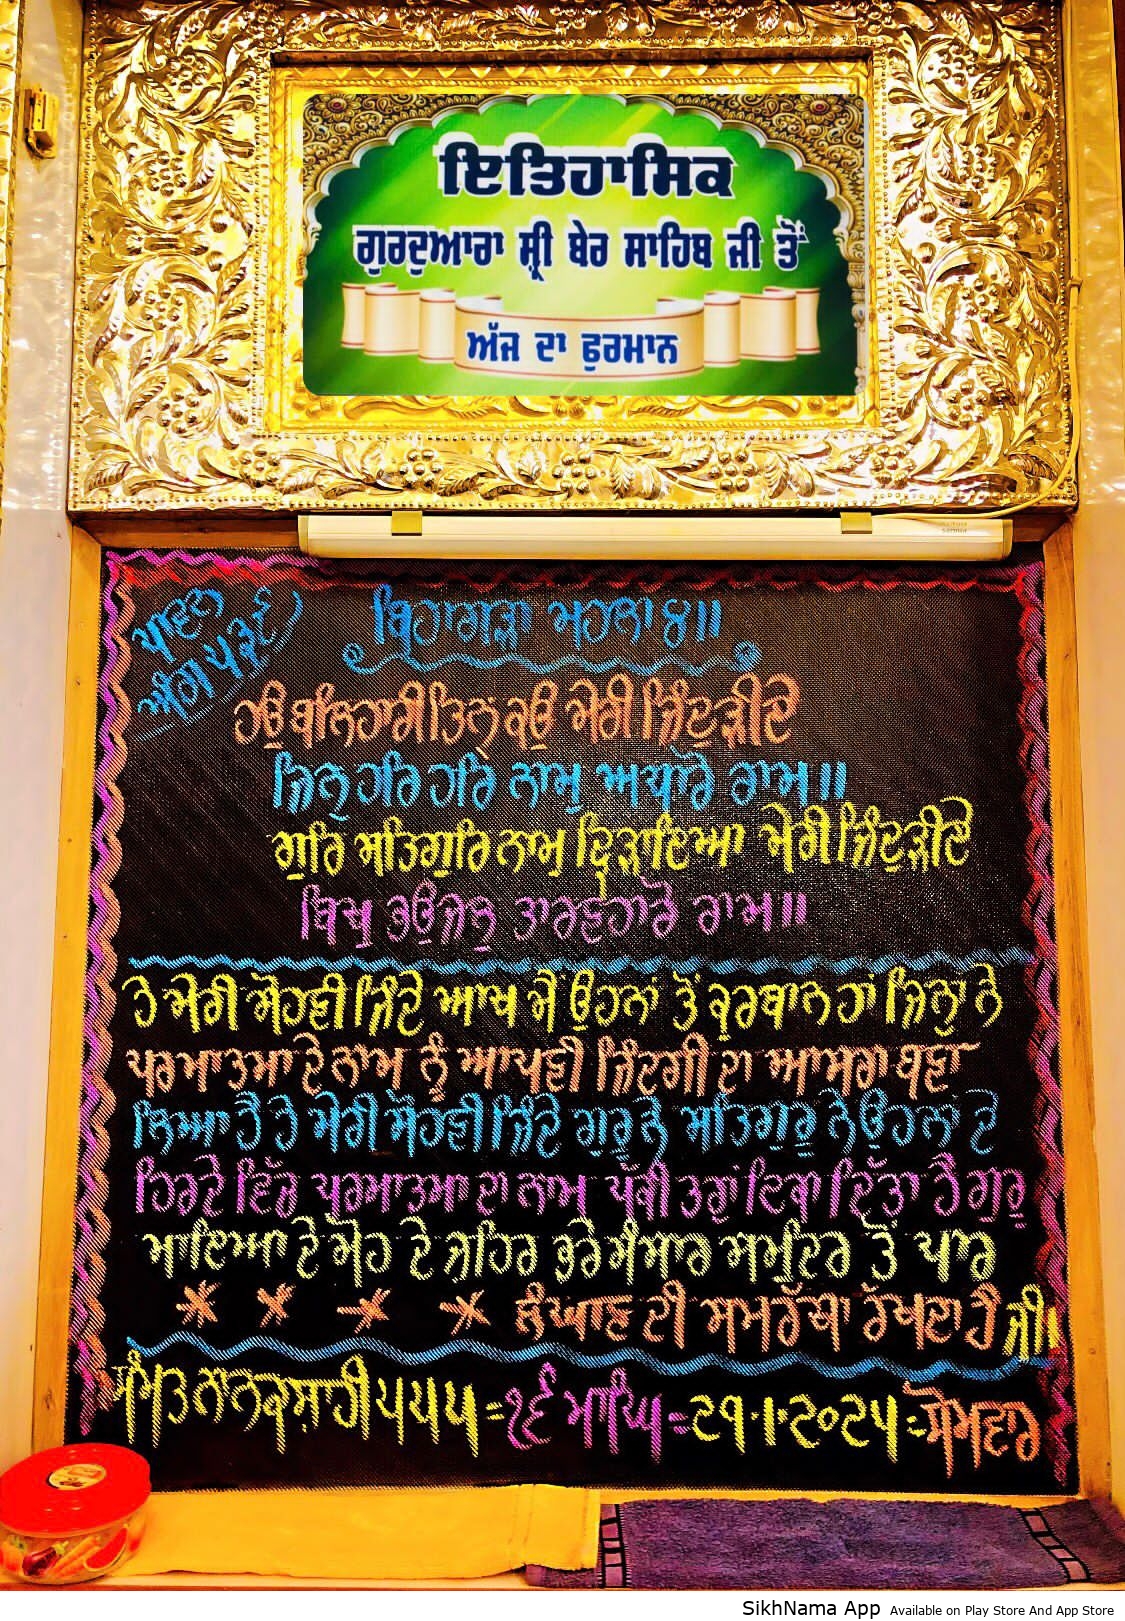 ਇਤਿਹਾਸਿਕ
ਗੁਰਦੁਆਰਾ ਸ਼੍ਰੀ ਬੇਰ ਸਾਹਿਬ ਜੀ ਤੋਂ
ਅੱਜ ਦਾ ਫੁਰਮਾਨ
ਪਾਵਨ
ਅੰਗ ੫੩੯
ਬਿਹਾਗੜਾ ਮਹਲਾ ੪॥
ਹਉ ਬਲਿਹਾਰੀ ਤਿਨ੍ ਕਉ ਮੇਰੀ ਜਿੰਦੁੜੀਏ
ਜਿਨ੍ ਹਰਿ ਹਰਿ ਨਾਮੁ ਅਧਾਰੋ ਰਾਮ॥
ਗੁਰਿ ਸਤਿਗੁਰਿ ਨਾਮੁ ਦ੍ਰਿੜਾਇਆ ਮੇਰੀ ਜਿੰਦੁੜੀਏ
ਬਿਖੁ ਭਉਜਲੁ ਤਾਰਣਹਾਰੋ ਰਾਮ॥
ਹੇ ਮੇਰੀ ਸੋਹਣੀ ਜਿੰਦੇ ਆਖ ਮੈਂ ਉਹਨਾਂ ਤੋਂ ਕੁਰਬਾਨ ਹਾਂ ਜਿਨ੍ਹਾ ਨੇ
ਪਰਮਾਤਮਾ ਦੇ ਨਾਮ ਨੂੰ ਆਪਣੀ ਜ਼ਿੰਦਗੀ ਦਾ ਆਸਰਾ ਬਣਾ
ਲਿਆ ਹੈ ਹੇ ਮੇਰੀ ਸੋਹਣੀ ਜਿੰਦੇ ਗੁਰੂ ਨੇ ਸਤਿਗੁਰੂ ਨੇ ਉਹਨਾਂ ਦੇ
ਹਿਰਦੇ ਵਿੱਚ ਪਰਮਾਤਮਾ ਦਾ ਨਾਮ ਪੱਕੀ ਤਰ੍ਹਾਂ ਟਿਕਾ ਦਿੱਤਾ ਹੈ ਗੁਰੂ
ਮਾਇਆ ਦੇ ਮੋਹ ਦੇ ਜ਼ਹਿਰ ਭਰੇ ਸੰਸਾਰ ਸਮੁੰਦਰ ਤੋਂ ਪਾਰ
* * * * ਲੰਘਾਣ ਦੀ ਸਮਰੱਥਾ ਰੱਖਦਾ ਹੈ ਜੀ।
ਸੰਮਤ ਨਾਨਕਸ਼ਾਹੀ ੫੫੫ = ੧੬ ਮਾਘਿ = ੨੧.੧.੨੦੨੫ = ਸੋਮਵਾਰ
SikhNama App Available on Play Store And App Store